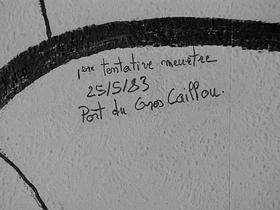 1ère tentative meurtre
25/5/83
Port du Gros Caillou.